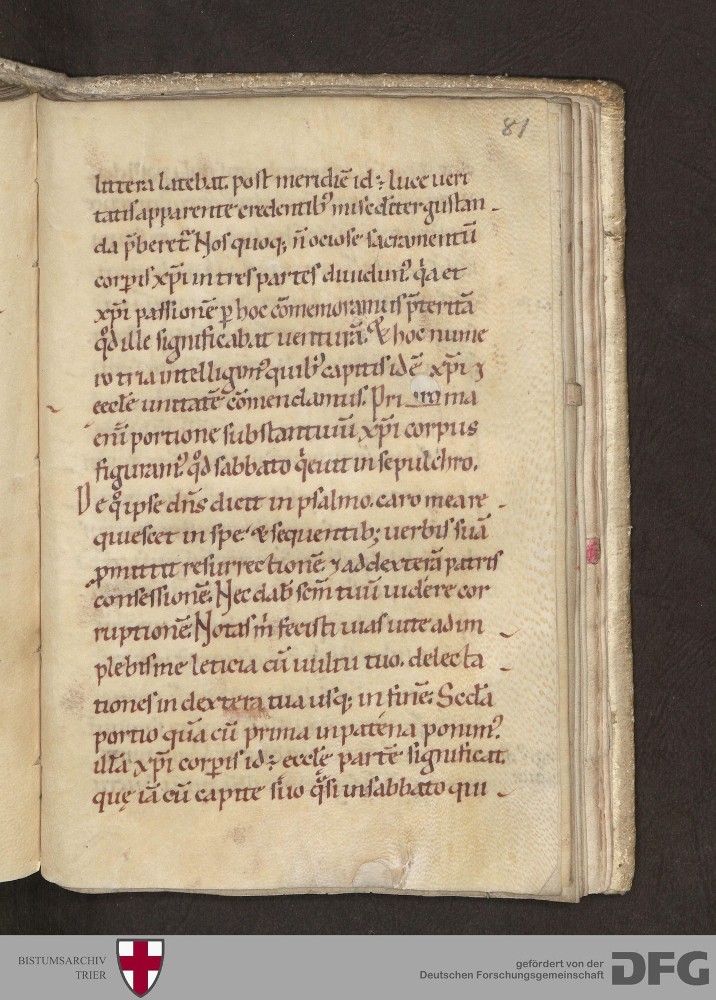 81
littera latebat. post meridiē id ÷ luce ueri
tatis apparente credentibꝰ misedīter gustan
da p̄beret᷑ Nos quoq; n̄ ociose sacramentū
corꝑis xp̄i in tres partes diuidimꝰ. qͥa et
xp̄i passionē ꝑ hoc cōmemoramus p̄teritā
qͦd ille significabat uenturā. & hoc nume
ro tria intelligimꝰ quibꝰ capitis id ē xp̄i ⁊
eccłe unitatē cōmendamus. Pri ma
eni̅ portione substantiuū xp̄i corpus
figuramꝰ. qͦd sabbato qͥeuit in sepulchro.
De qͦ ipse dn̄s dicit in psalmo. caro mea re
quiescet in spe. & sequentib; uerbis suā
ꝓmittit resurrectionē. ⁊ ad dexterā patris
consessionē. Nec dab̄ scm̄ tuū uidere cor
ruptionē. Notas m̄ fecisti uias uite adim
plebis me leticia cū uultu tuo. delecta
tiones in dextera tua usq; in finē. Scd̄a
portio quā cū prima in patena ponimꝰ.
illā xp̄i corꝑis id ÷ eccłę partē significat
quę iā cū capite suo qͣsi in sabbato qui
BISTUMSARCHIV
TRIER
gefördert von der
Deutschen Forschungsgemeinschaft
DFG